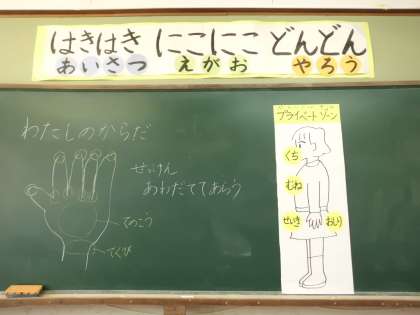 はきはき にこにこ どんどん
あいさつ えがお やろう
わたしのからだ
せっけん
あわだててあらう
てのこう
てくび
プライベートゾーン
くち
むね
せいき
おしり